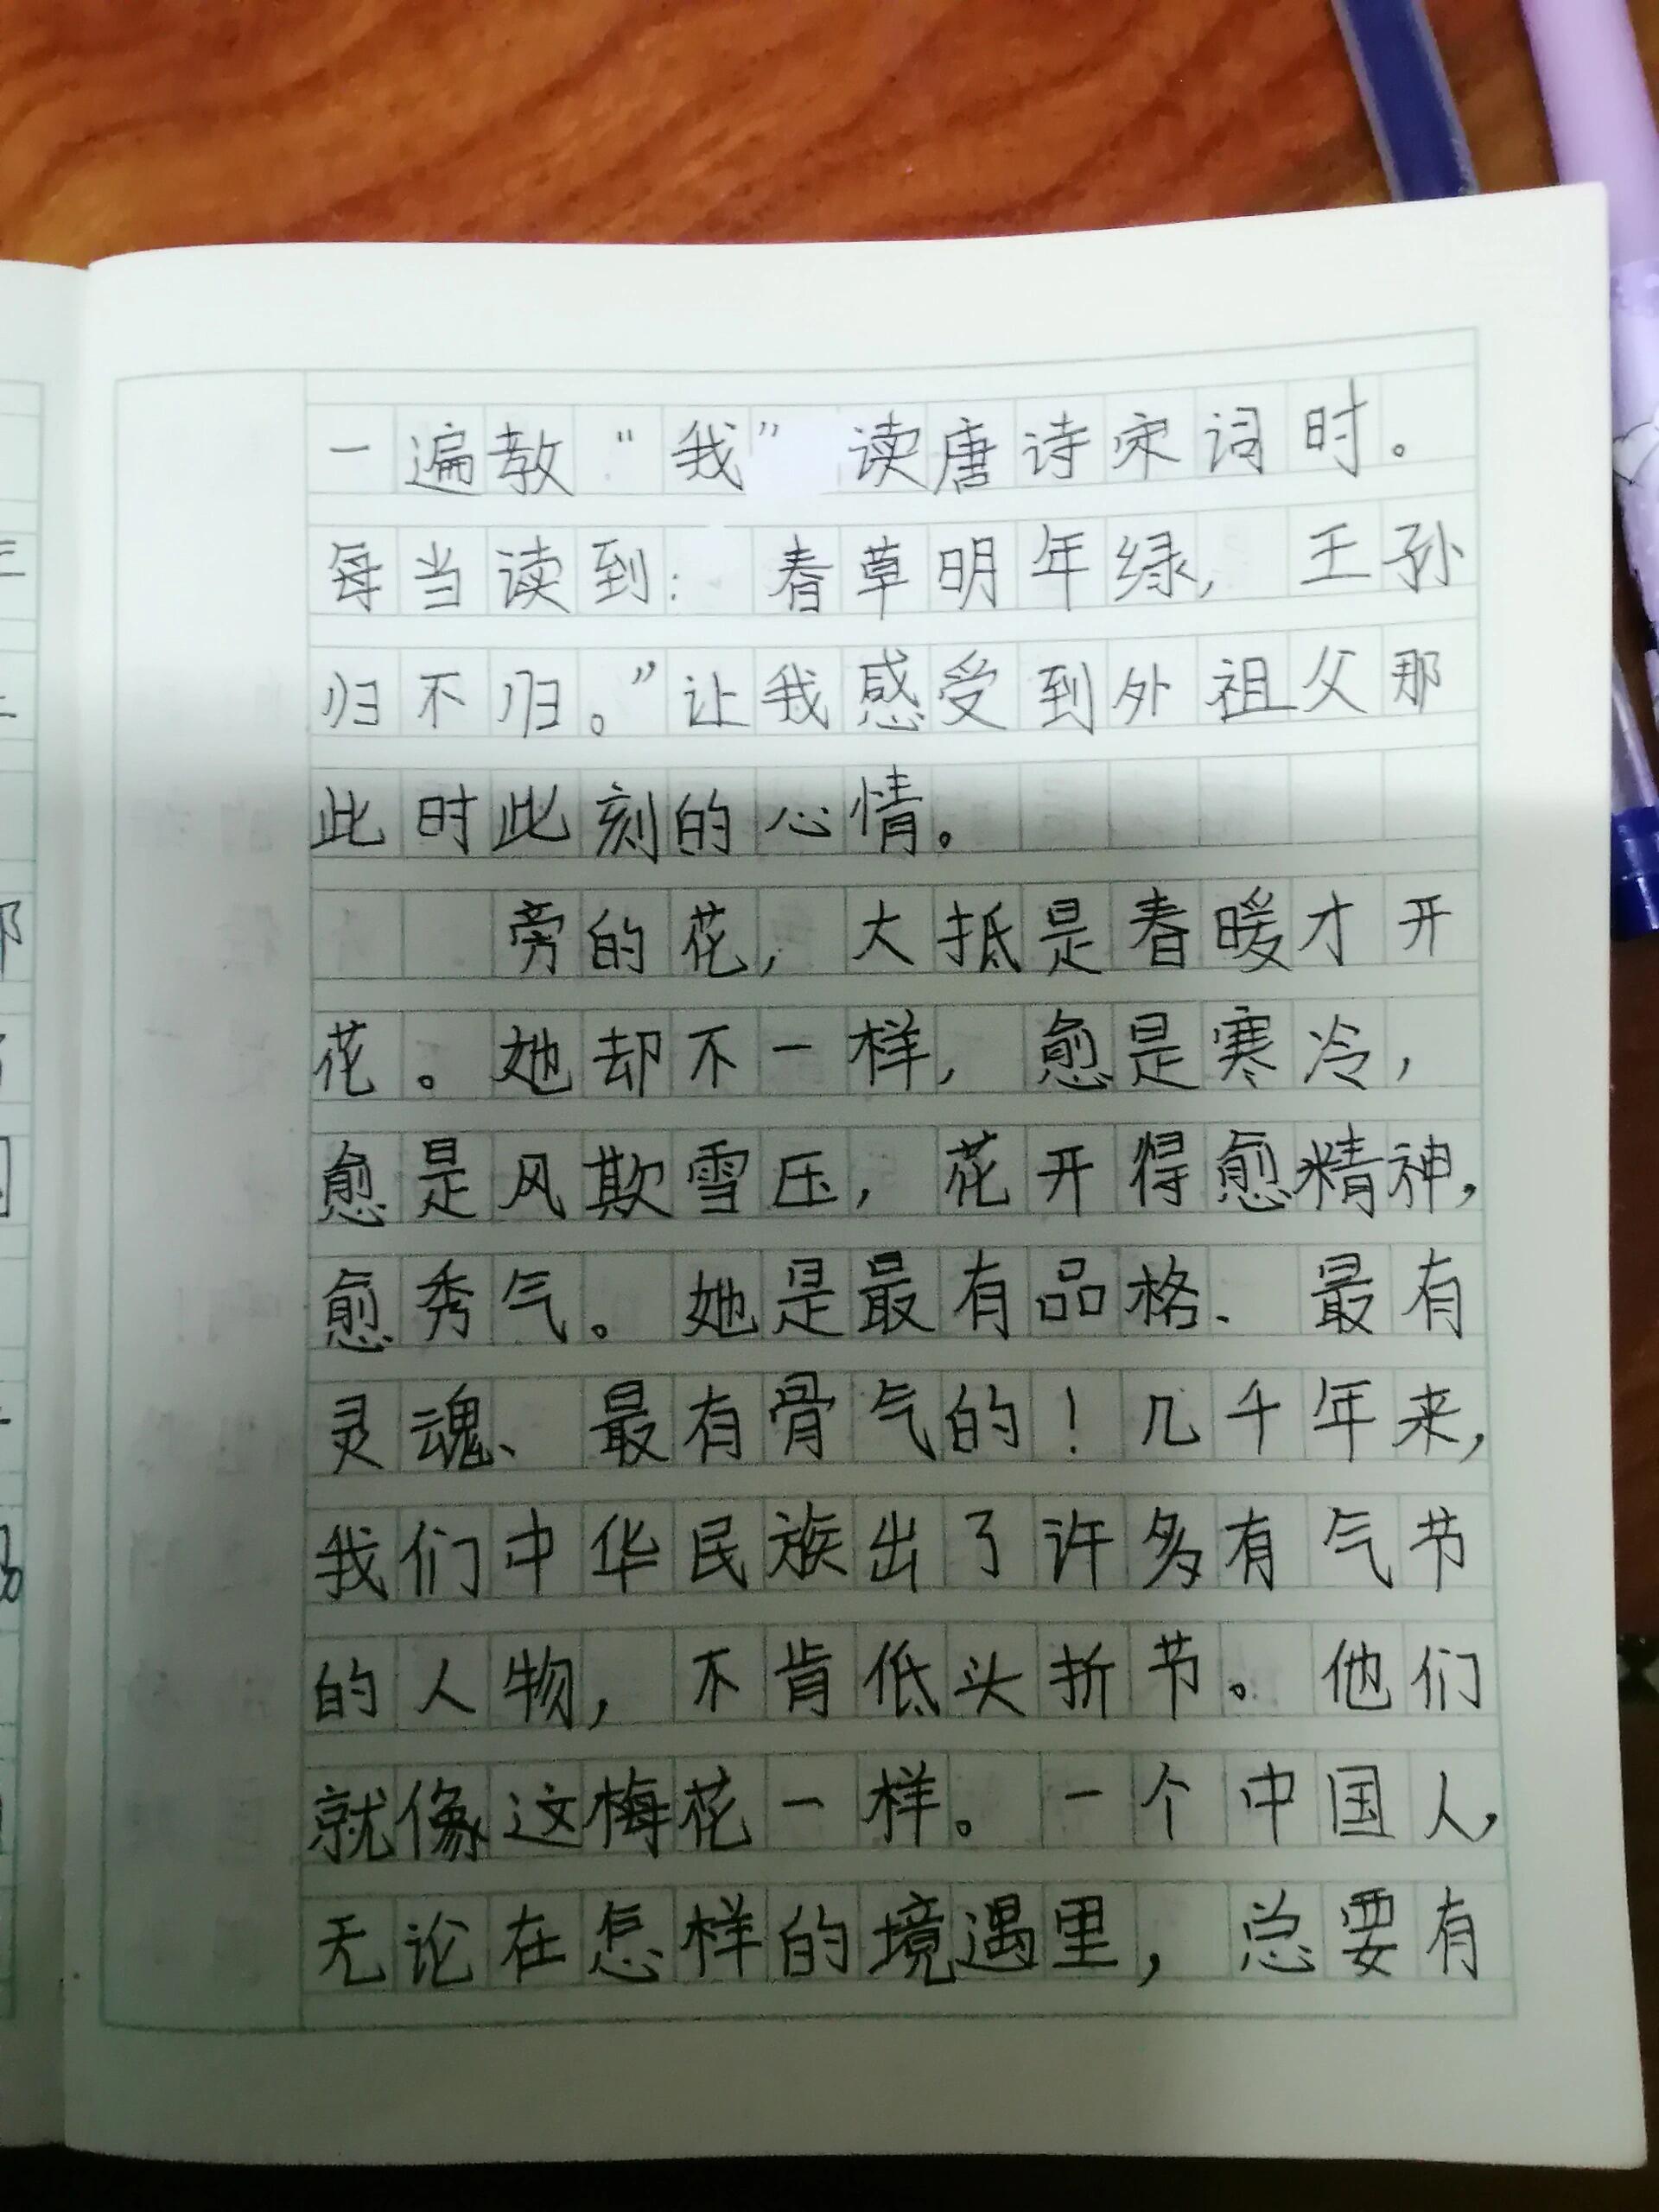 一遍教“我”读唐诗宋词时。
每当读到：春草明年绿，王孙
归不归。”让我感受到外祖父那
此时此刻的心情。
旁的花，大抵是春暖才开
花。她却不一样，愈是寒冷，
愈是风欺雪压，花开得愈精神，
愈秀气。她是最有品格、最有
灵魂、最有骨气的！几千年来，
我们中华民族出了许多有气节
的人物，不肯低头折节。他们
就像这梅花一样。一个中国人，
无论在怎样的境遇里，总要有